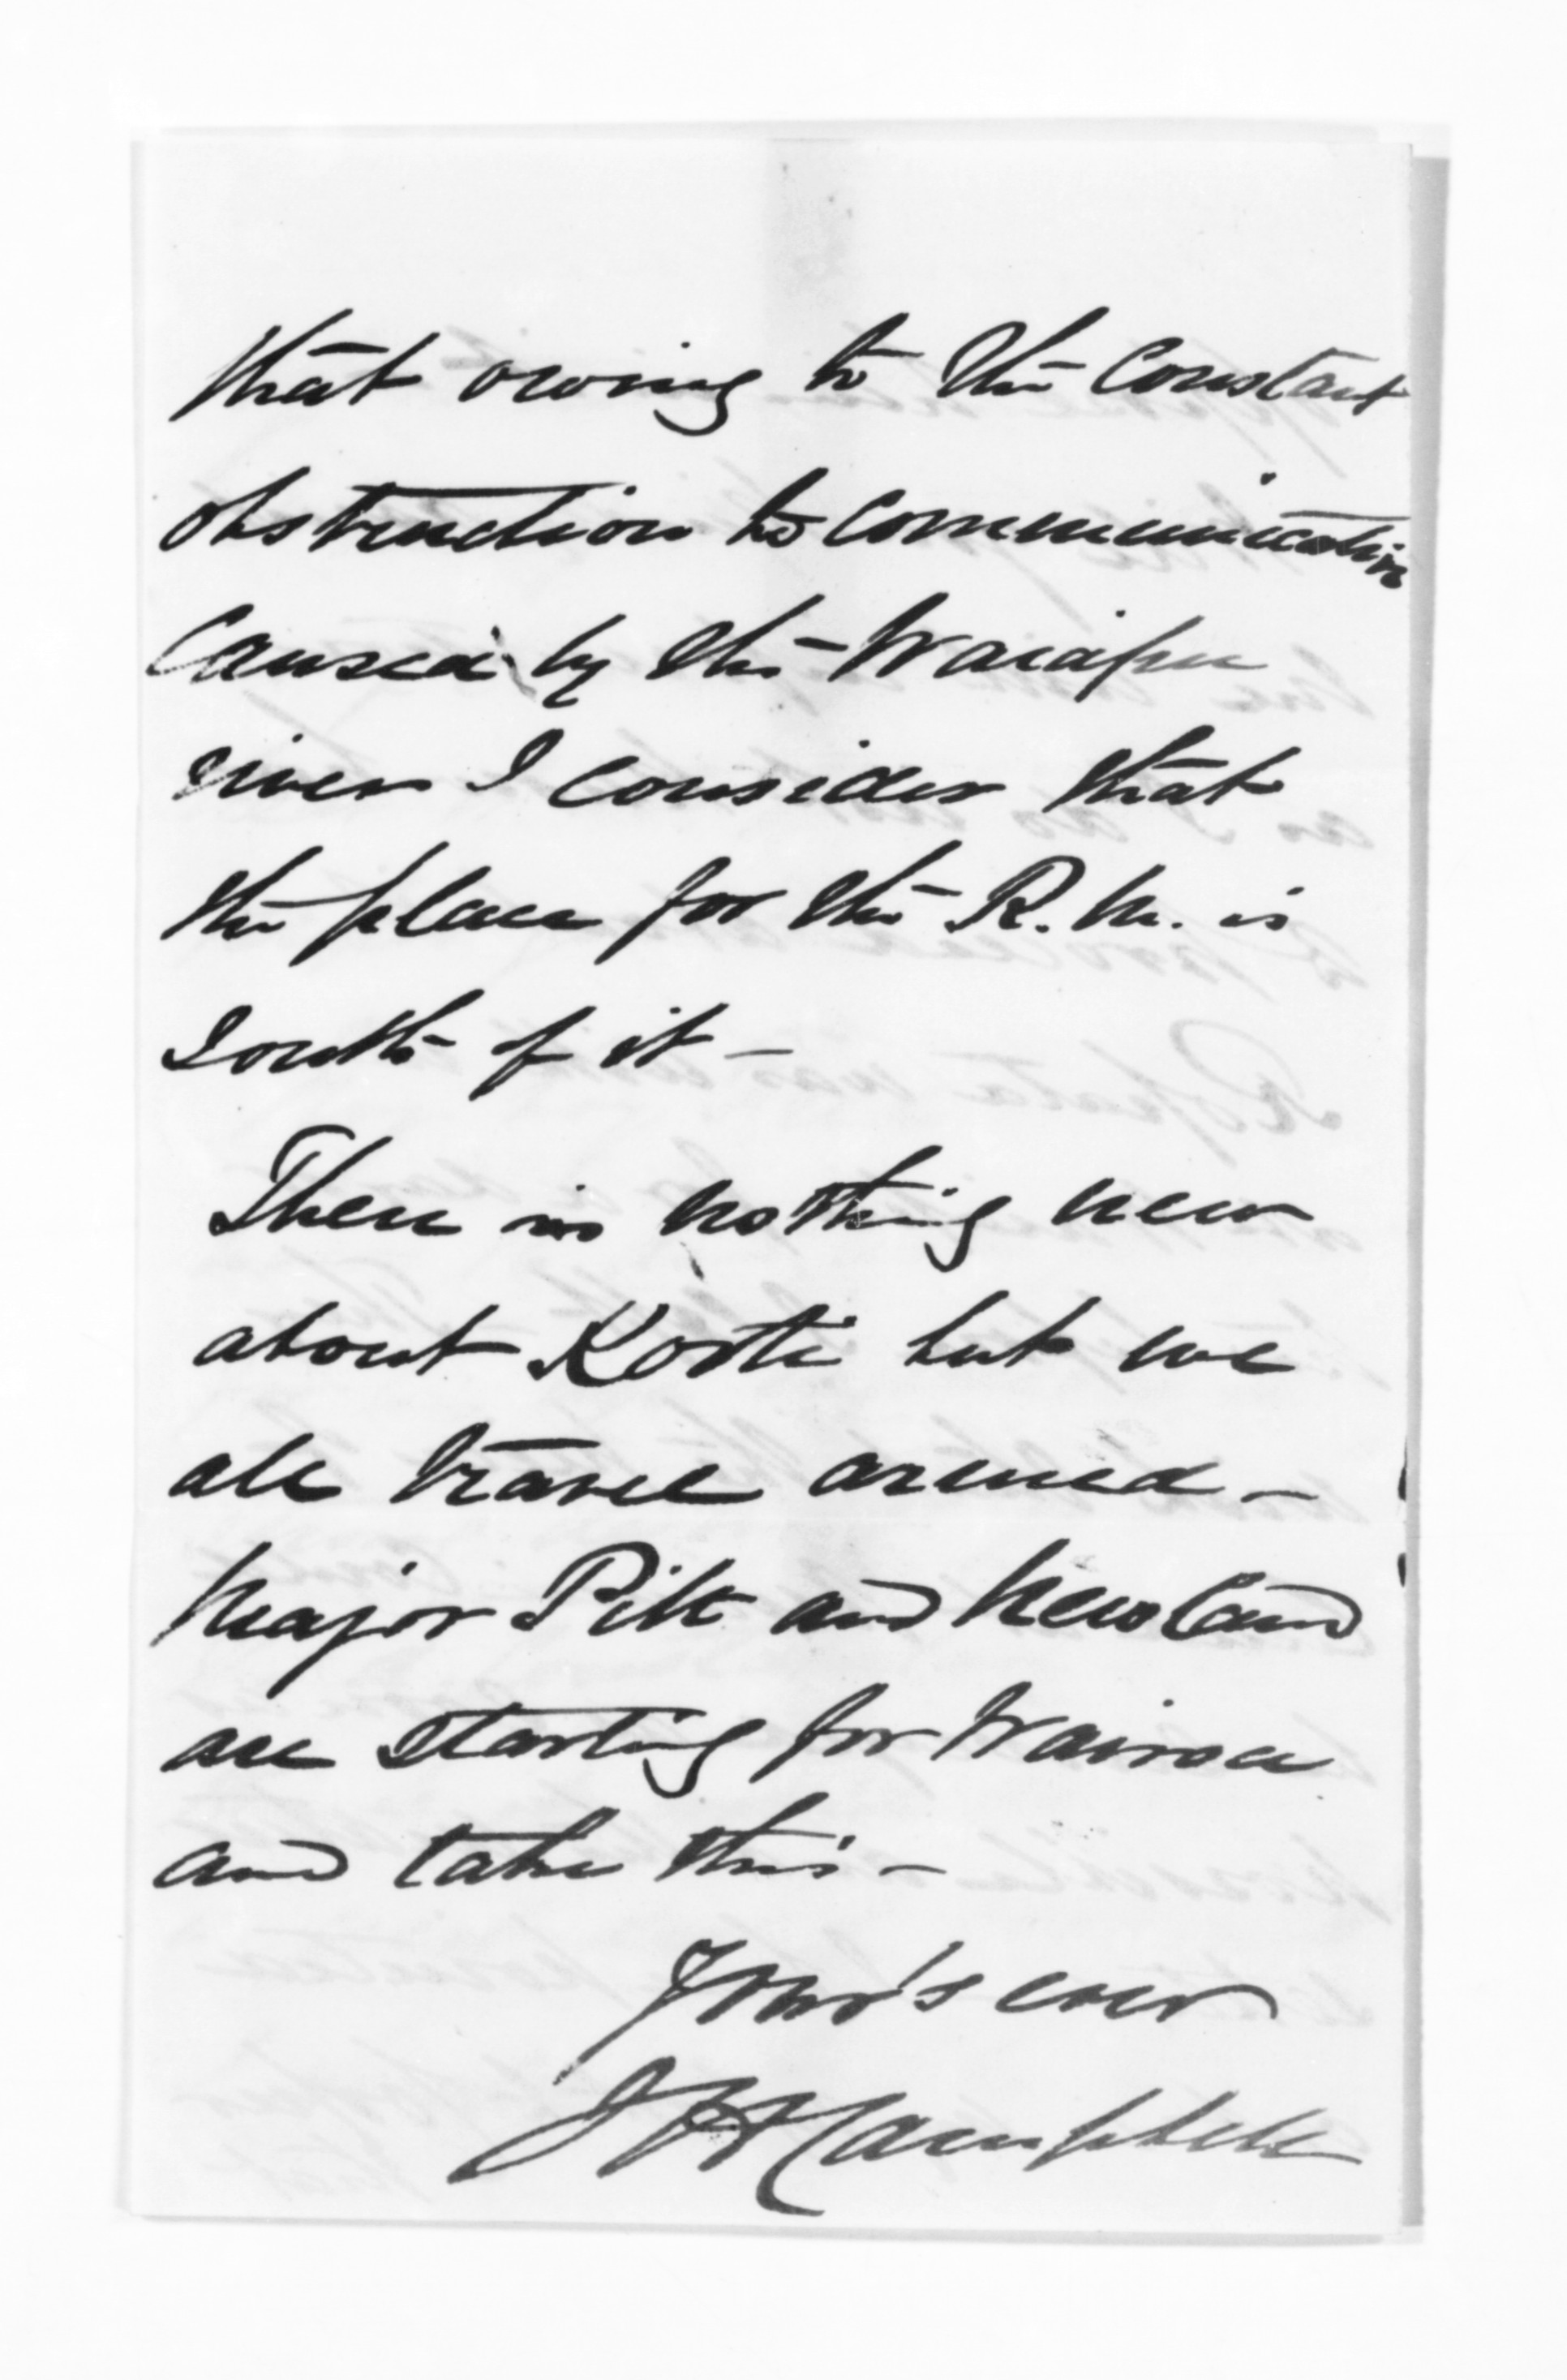 that owing to the Constant
obstruction to Communication
Caused by the Waiapu
river I consider that
the place for the R. M. is
South of it –
There is nothing new
about Kooti but we
all travel armed –
Major Pitt and Newland
are starting for Wairoa
and take this –
Your's ever
Campbell